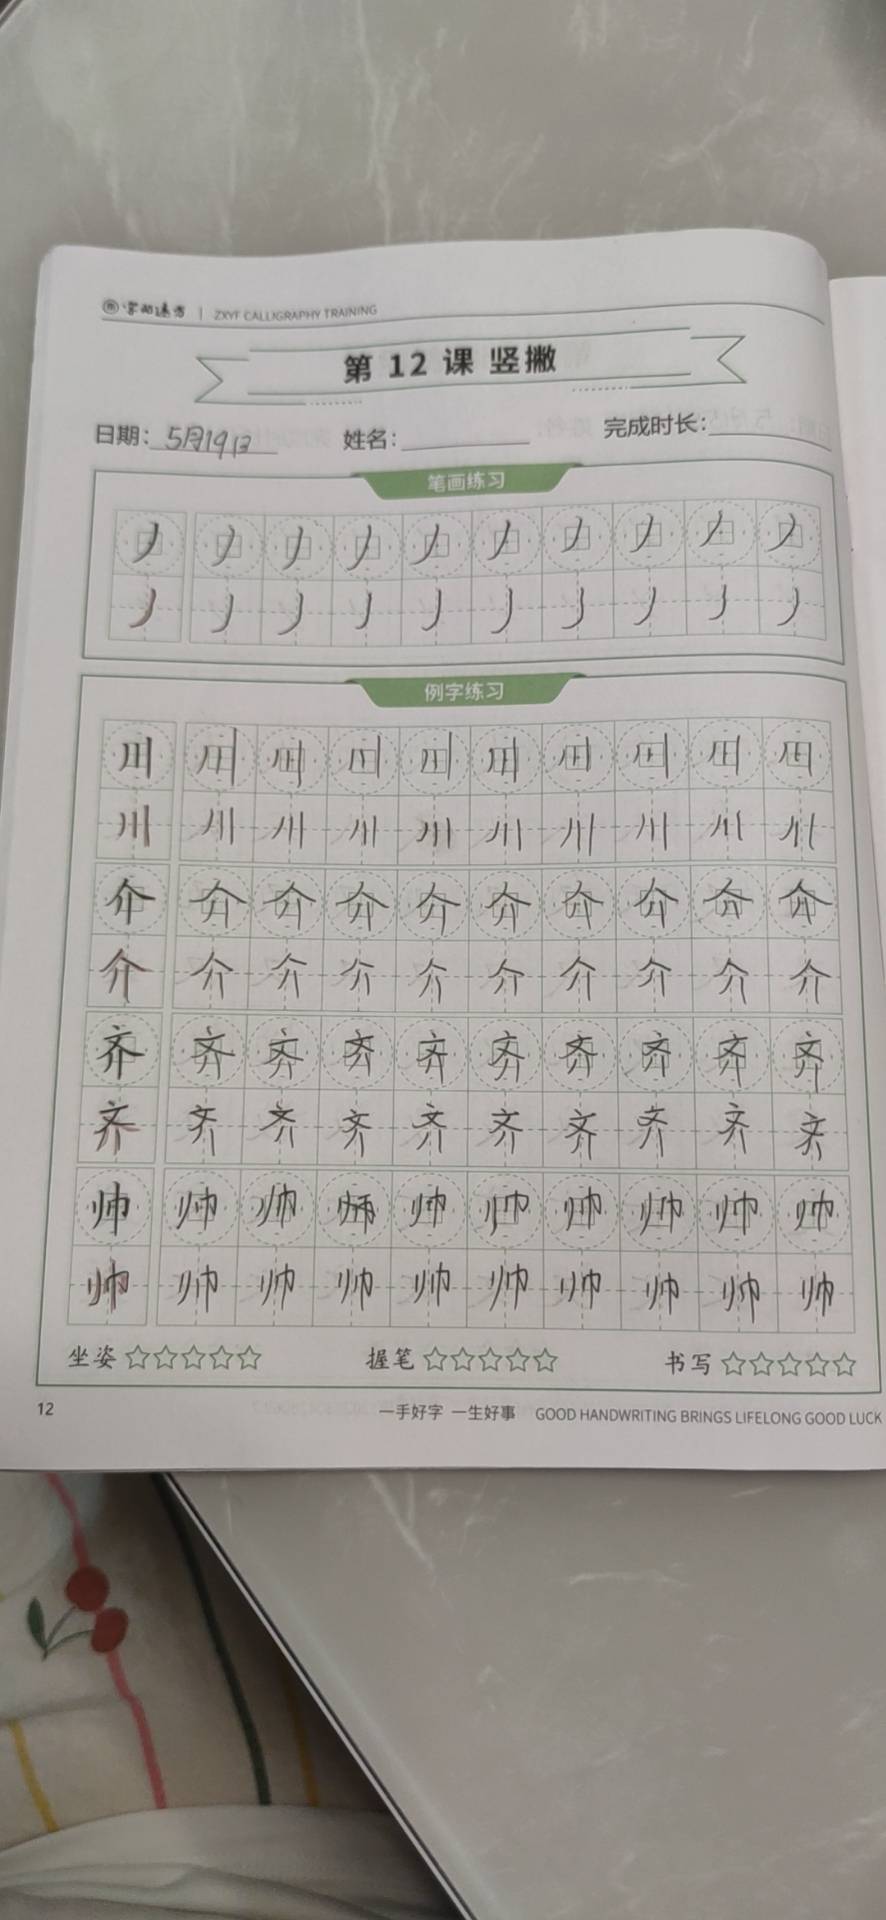 字酌远方 | ZXYF CALLIGRAPHY TRAINING
第 12 课 竖撇
日期: 5月19日 姓名: 完成时长:
笔画练习
丿 丿 丿 丿 丿 丿 丿 丿 丿 丿
丿 丿 丿 丿 丿 丿 丿 丿 丿 丿
例字练习
川 川 川 川 川 川 川 川 川 川
川 川 川 川 川 川 川 川 川 川
介 介 介 介 介 介 介 介 介 介
介 介 介 介 介 介 介 介 介 介
齐 齐 齐 齐 齐 齐 齐 齐 齐 齐
齐 齐 齐 齐 齐 齐 齐 齐 齐 齐
帅 帅 帅 帅 帅 帅 帅 帅 帅 帅
帅 帅 帅 帅 帅 帅 帅 帅 帅 帅
坐姿 ☆☆☆☆☆ 握笔 ☆☆☆☆☆ 书写 ☆☆☆☆☆
12 一手好字 一生好事 GOOD HANDWRITING BRINGS LIFELONG GOOD LUCK